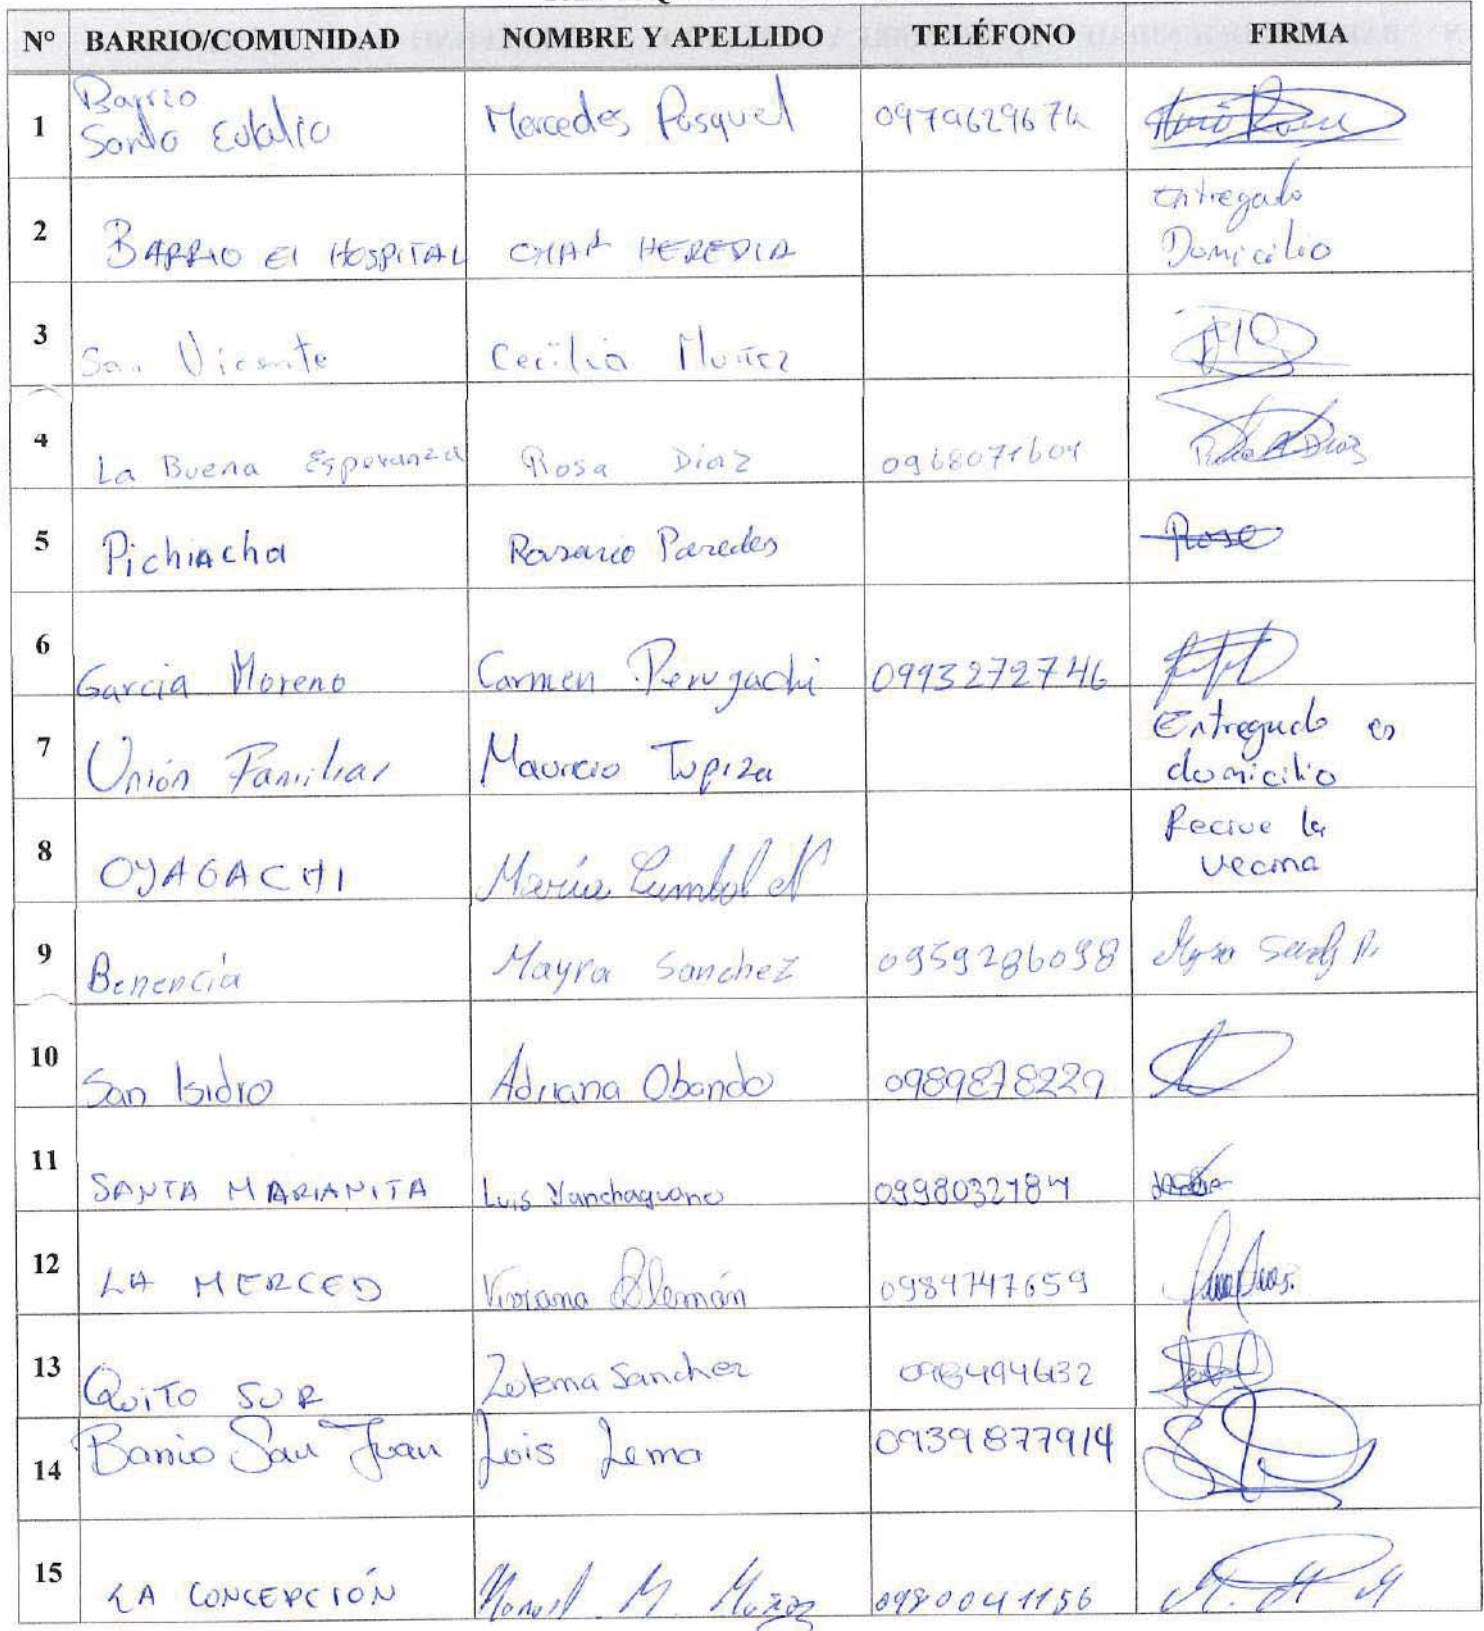 N° BARRIO/COMUNIDAD NOMBRE Y APELLIDO TELÉFONO FIRMA
1 Barrio Santa Eulalia Mercedes Pasquel
2 BARRIO El HOSPITAL HEREDIA Entregado Domicilio
3 San Vicente Cecilia Muñoz
4 La Buena Esperanza Rosa Diaz 0968071604 Rosa Diaz
5 Pichincha Rosario Paredes Rosa
6 Garcia Moreno Carmen Perugachi 0993272746
7 Unión Familiar Mauricio Tupiza Entregado en domicilio
8 OYAGACHI María Recive la vecina
9 Benencia Mayra Sanchez 0959286098
10 San Isidro Adriana Obando 0989878229
11 SANTA MARIANITA Luis 
12 LA MERCED Viviana Alemán 0984747659
13 QuiTO SUR Zulema Sanchez
14 Barrio San Juan Luis Lema 0939877914
15 LA CONCEPCIÓN Manuel M. Muñoz 0980041156